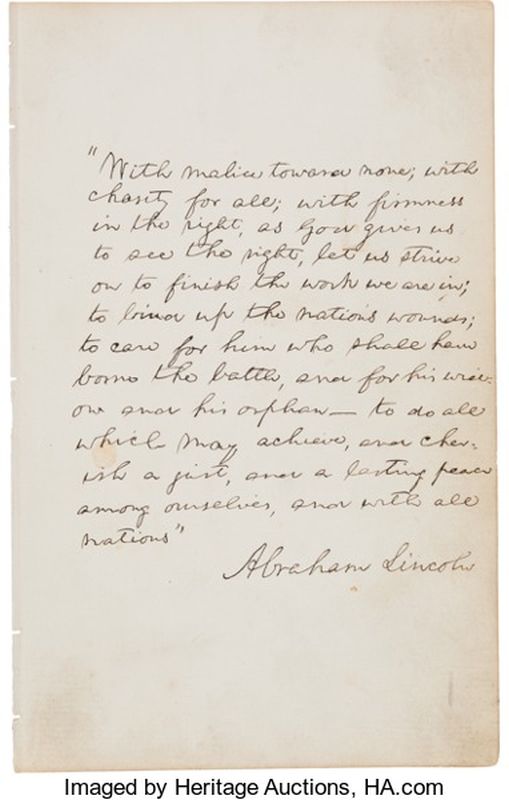 "With malice toward none; with
charity for all; with firmness
in the right, as God gives us
to see the right, let us strive
on to finish the work we are in;
to bind up the nation's wounds;
to care for him who shall have
borne the battle, and for his wid-
ow and his orphan— to do all
which may achieve, and cher-
ish a just, and a lasting peace
among ourselves, and with all
nations"
Abraham Lincoln
Imaged by Heritage Auctions, HA.com